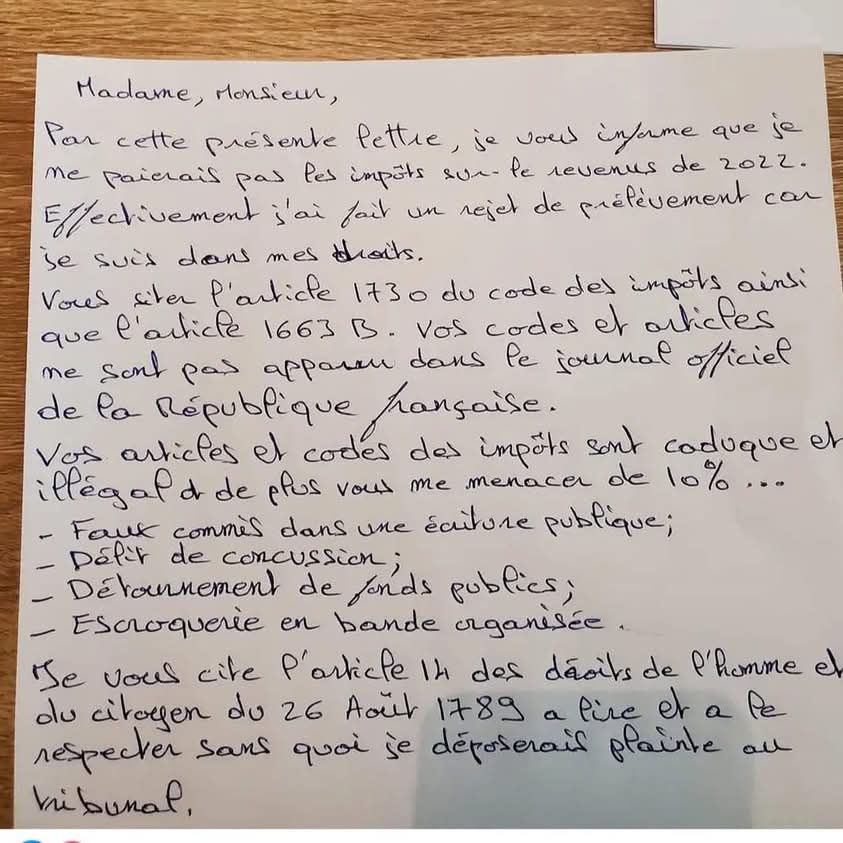 Madame, Monsieur,
Par cette présente lettre, je vous informe que je
ne paierais pas les impôts sur le revenus de 2022.
Effectivement j'ai fait un rejet de prélèvement car
je suis dans mes droits.
Vous siter l'article 1730 du code des impôts ainsi
que l'article 1663 B. Vos codes et articles
ne sont pas apparu dans le journal officiel
de la République française.
Vos articles et codes des impôts sont caduque et
illégal et de plus vous me menacer de 10% ...
- Faux commis dans une écriture publique;
- Délit de concussion;
- Détournement de fonds publics;
- Escroquerie en bande organisée.
Je vous cite l'article 14 des droits de l'homme et
du citoyen du 26 Août 1789 a lire et a le
respecter sans quoi je déposerais plainte au
tribunal.